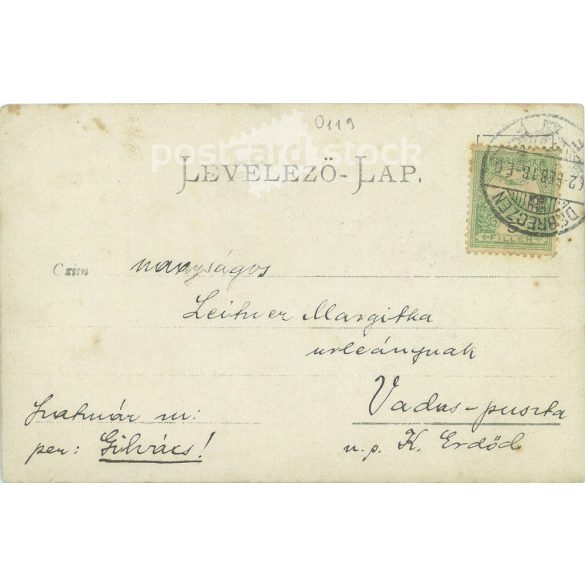 0119
postcard stock
LEVELEZŐ-LAP.
DEBRECZEN
FILLÉR
Czim nagyságos
Leitner Margitka
urleánynak
Vadas-puszta
u.p. K. Erdőd
Szatmár m:
per: Gilvács!